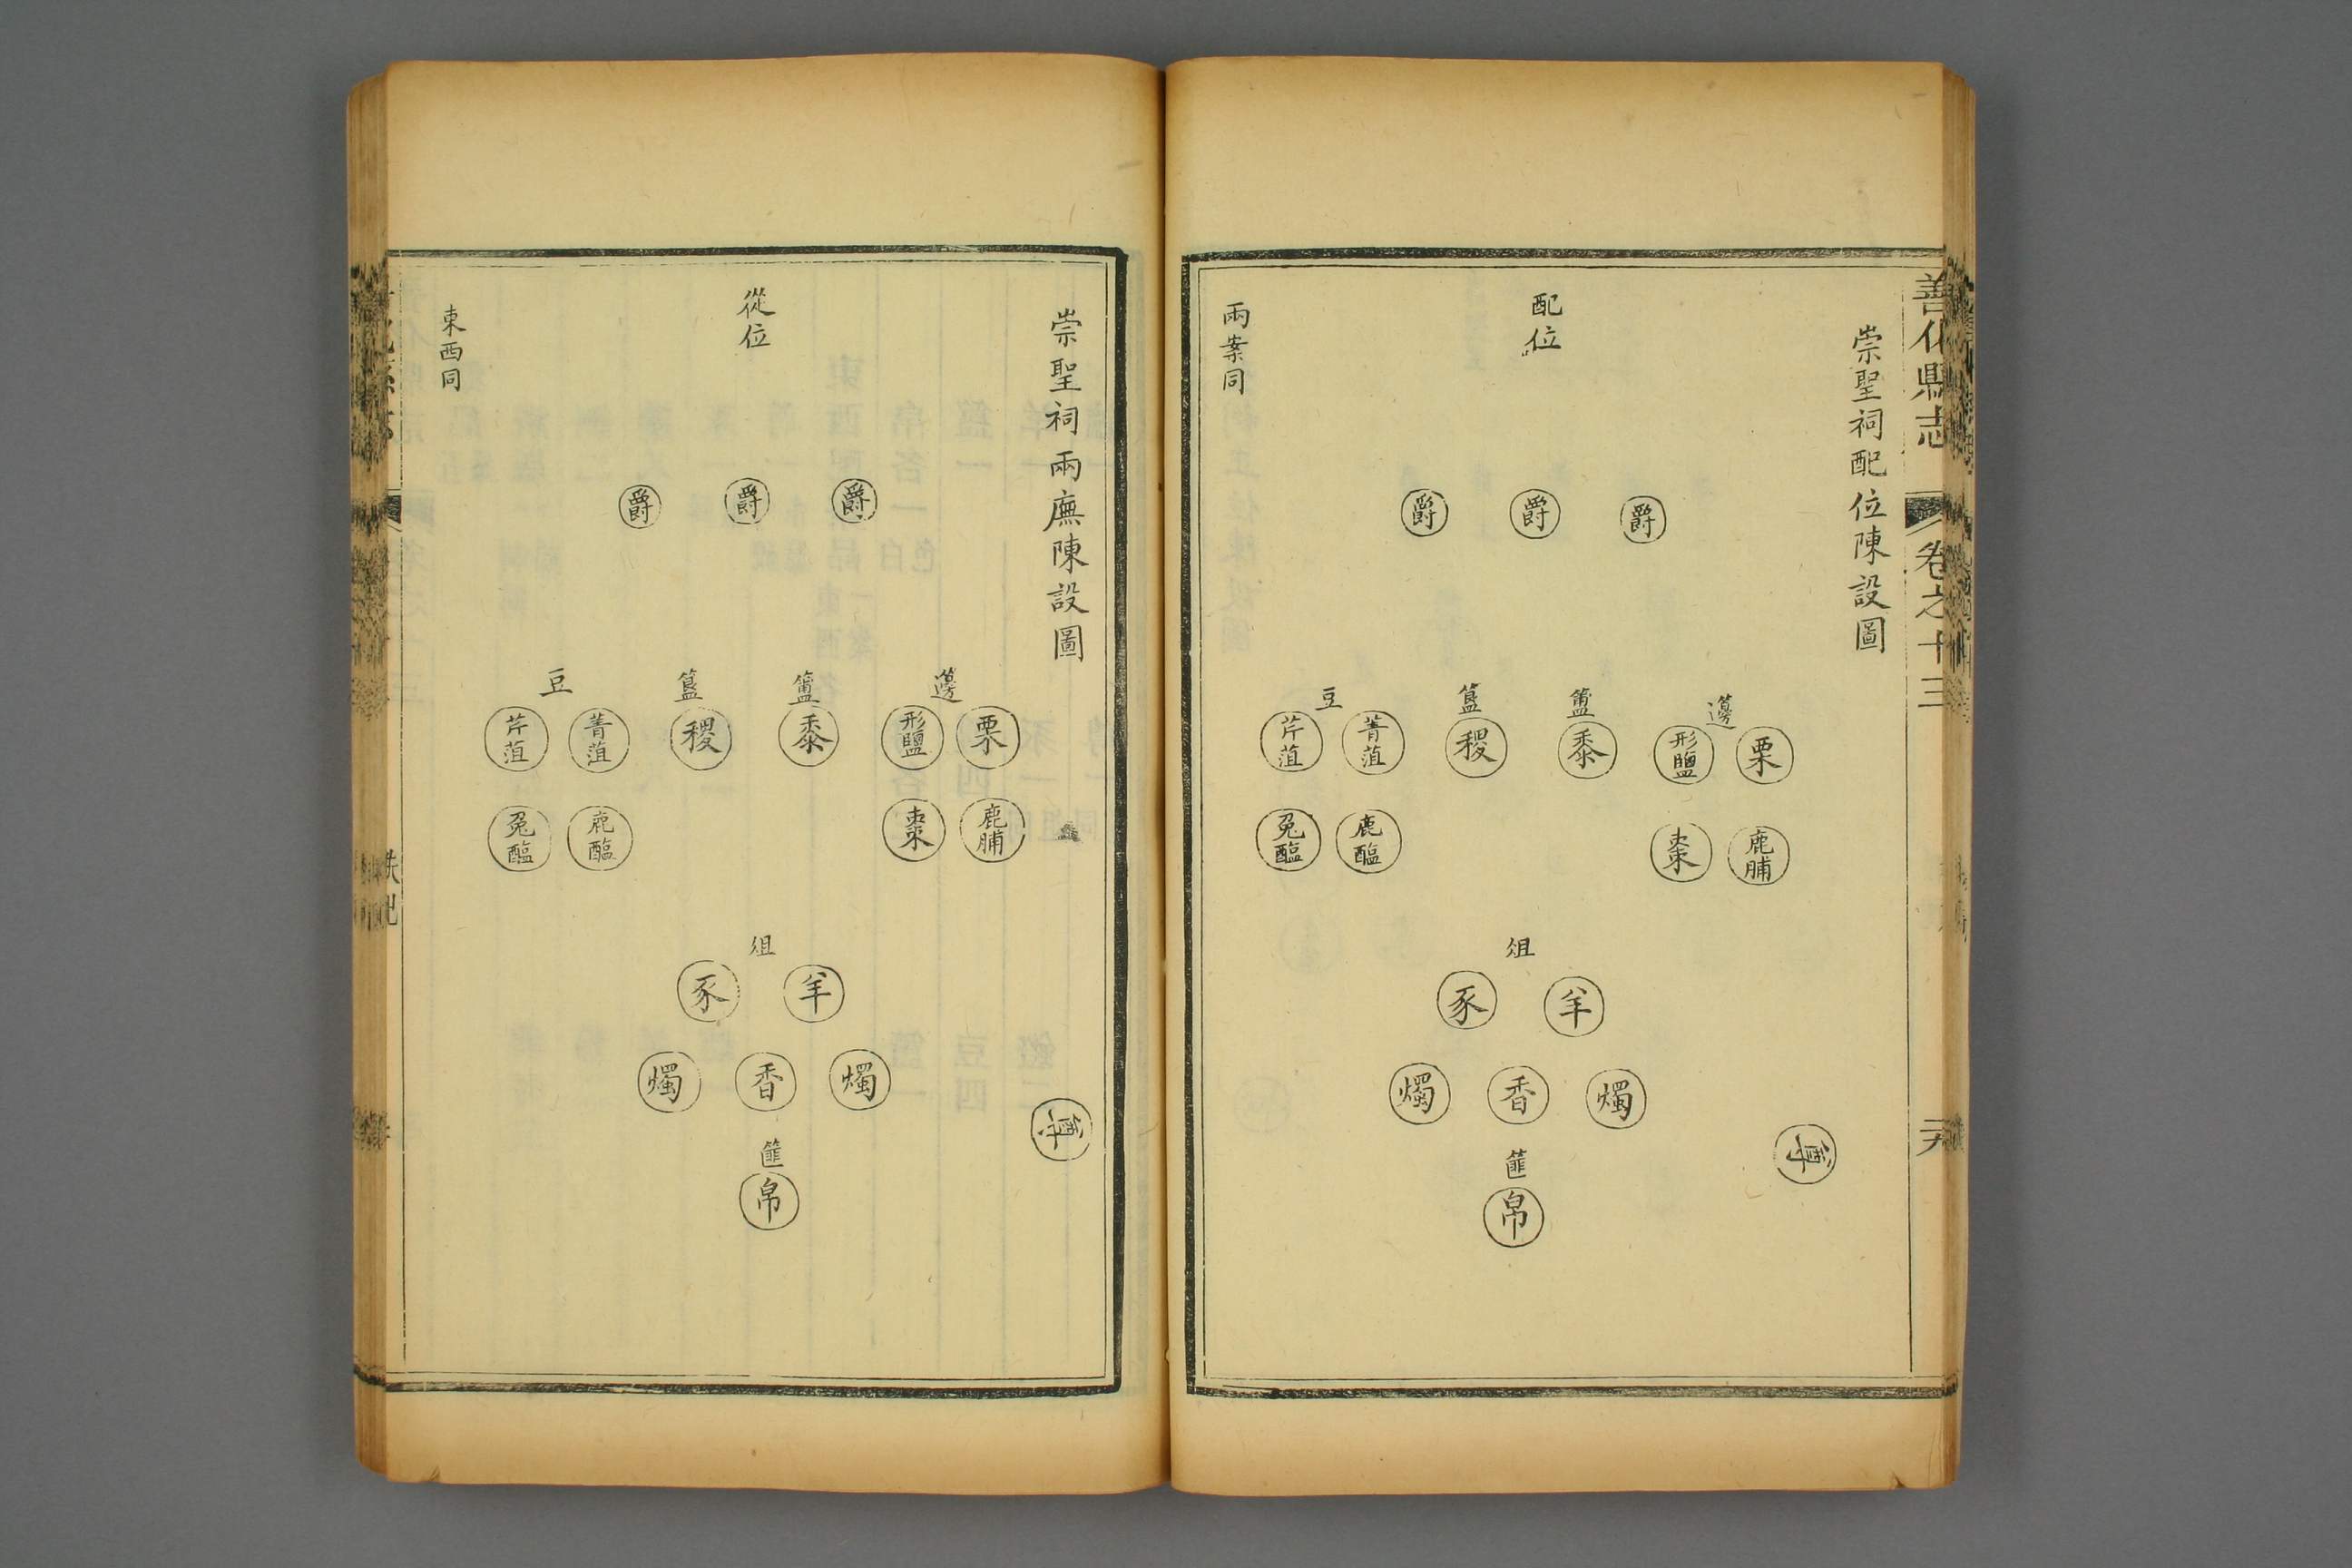 善化縣志 卷之十三
崇聖祠配位陳設圖
配位
爵 爵 爵
籩 簠 簋 豆
栗 形鹽 黍 稷 菁菹 芹菹
鹿脯 棗 鹿醢 兔醢
俎
羊 豕
燭 香 燭
篚
帛
罇
兩案同
崇聖祠兩廡陳設圖
從位
爵 爵 爵
籩 簠 簋 豆
栗 形鹽 黍 稷 菁菹 芹菹
鹿脯 棗 鹿醢 兔醢
俎
羊 豕
燭 香 燭
篚
帛
罇
東西同